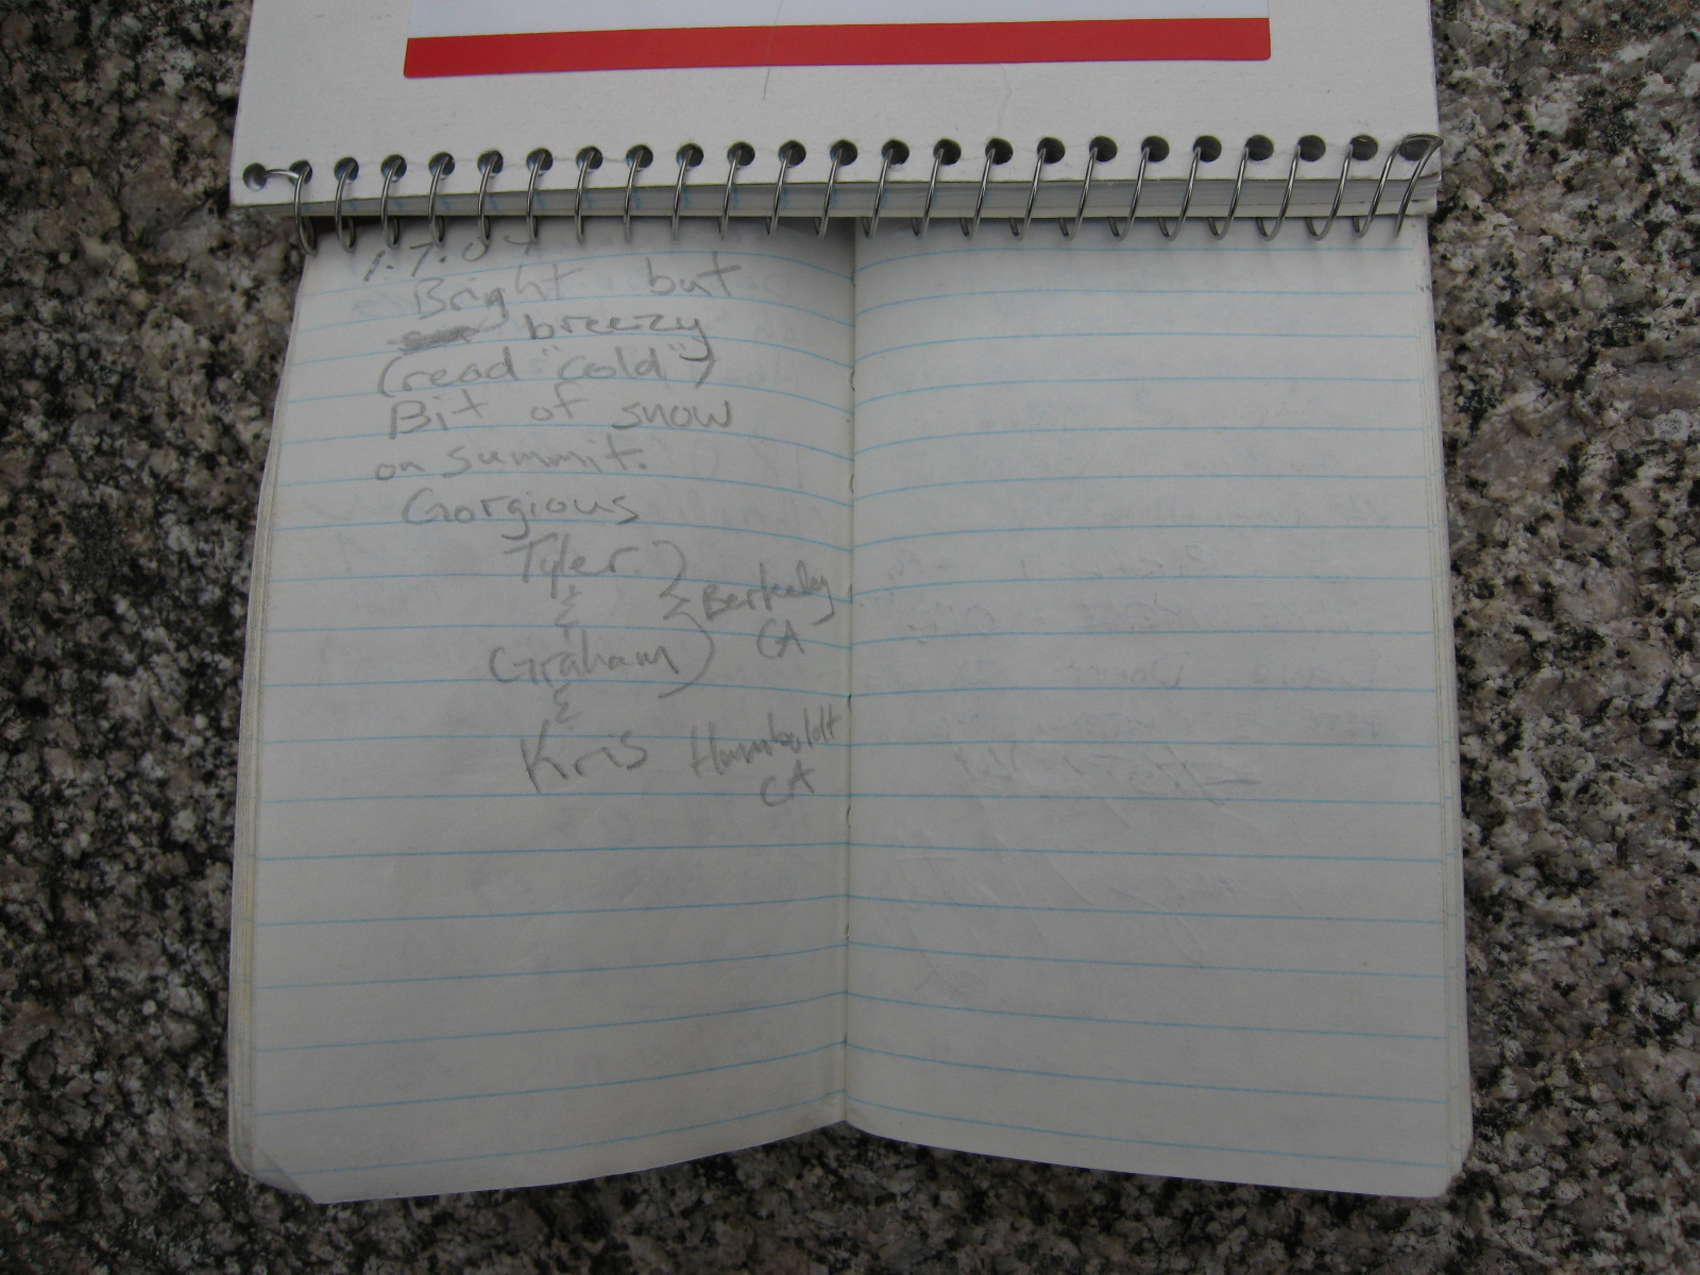 1.7.07
Bright but
breezy
(read "cold")
Bit of snow
on summit.
Gorgious
Tyler
&
Berkeley
CA
Graham
&
Kris Humboldt
CA